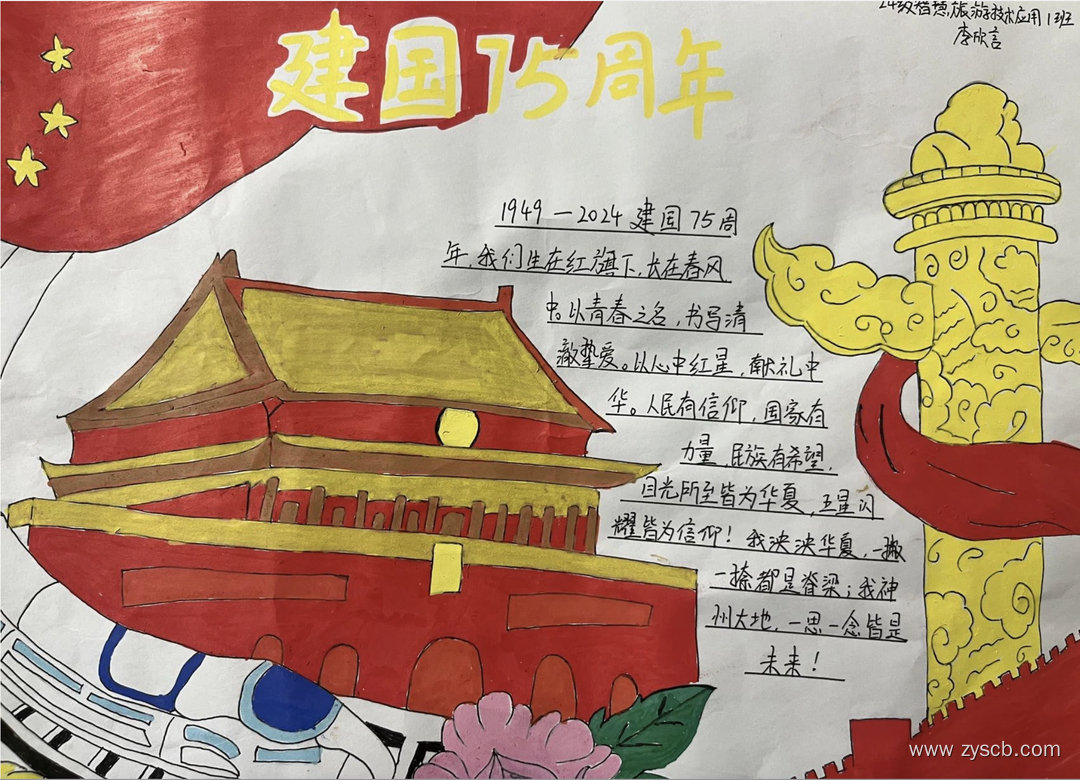 24级智慧旅游技术应用1班
李欣言
建国75周年
1949—2024建国75周
年,我们生在红旗下,长在春风
中。以青春之名,书写清
澈挚爱。以心中红星,献礼中
华。人民有信仰,国家有
力量,民族有希望,
目光所至皆为华夏,五星闪
耀皆为信仰!我泱泱华夏,一撇
一捺都是脊梁;我神
州大地,一思一念皆是
未来!
www.zyscb.com